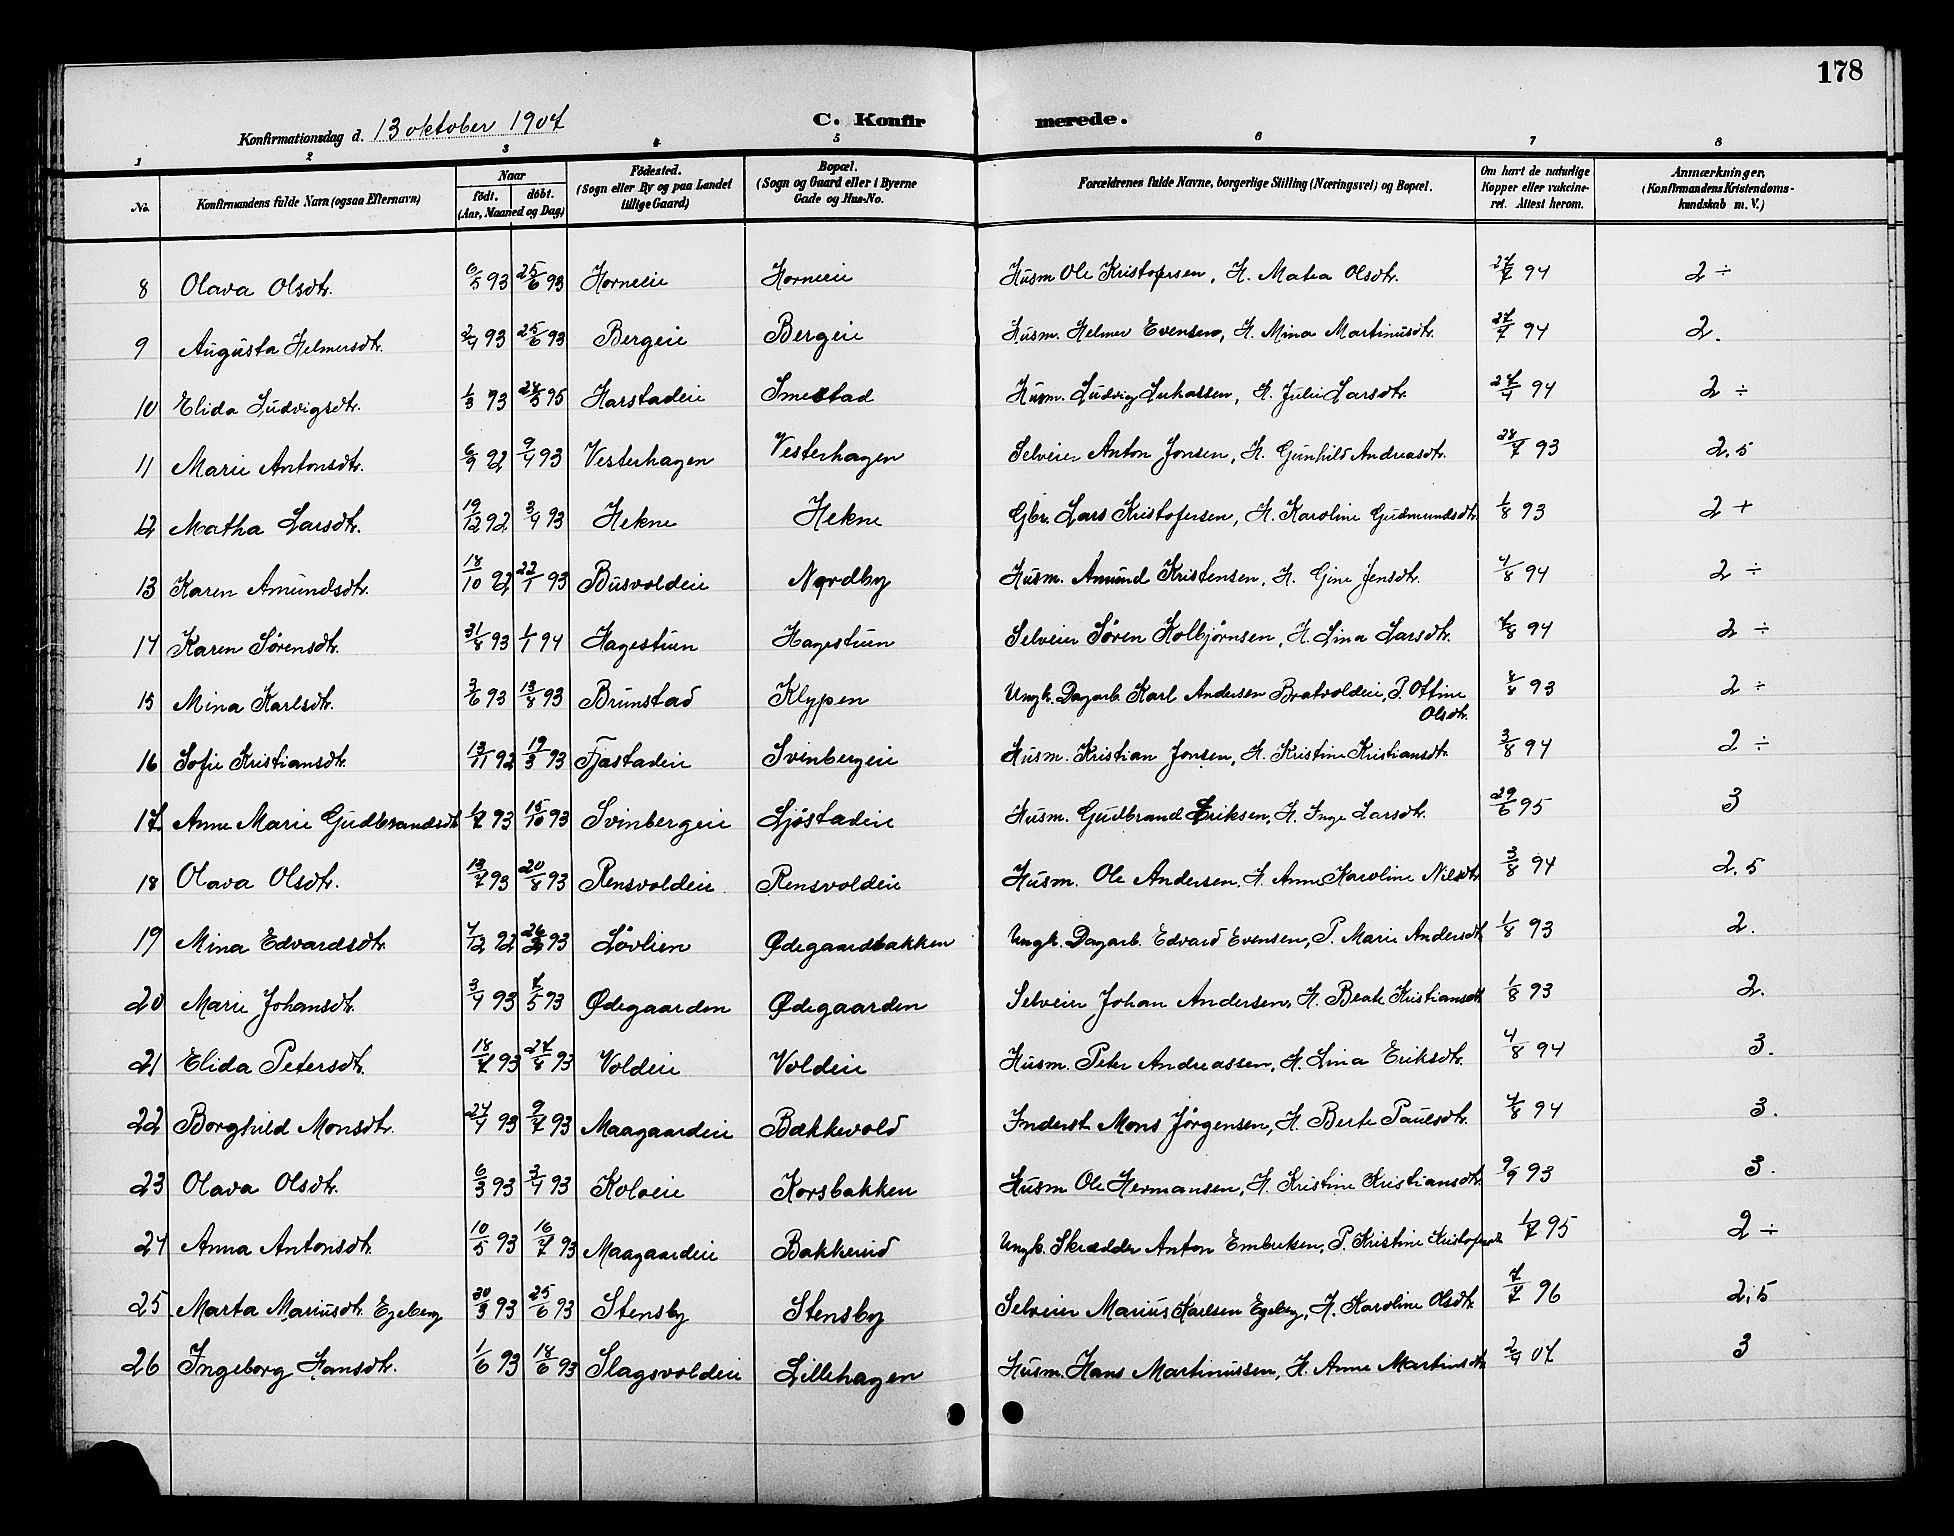 178
Konfirmationsdag d. 13 oktober 1907
C. Konfirmerede.
1 2 3 4 5 6 7 8
No. Konfirmandens fulde Navn (ogsaa Efternavn) Naar født. døbt. (Aar, Maaned og Dag) Fødested. (Sogn eller By og paa Landet tillige Gaard) Bopæl. (Sogn og Gaard eller i Byerne Gade og Hus-No. Forældrenes fulde Navne, borgerlige Stilling (Næringsvei) og Bopæl. Om havt de naturlige Kopper eller vakcineret. Attest herom. Anmærkninger, (Konfirmandens Kristendomskundskab m. V.)
8 Olava Olsdtr. 6/5 93 25/6 93 Horneie Horneie Husm Ole Kristofersen, H. Matea Olsdtr. 27/7 94 2 ÷
9 Augusta Helmersdtr. 2/4 93 25/6 93 Bergeie Bergeie Husm. Helmer Evensen, H. Mina Martinusdtr. 27/7 94 2.
10 Elida Ludvigsdtr. 1/3 93 Harstadeie Smestad Husm. Ludvig Lukassen, H. Julie Larsdtr. 94 2 ÷
11 Marie Antonsdtr. 6/9 92 9/4 93 Vesterhagen Vesterhagen Selveier Anton Jonsen, H. Gunhild Andreasdtr. 28/7 93 2,5
12 Matha Larsdtr. 19/12 92 3/4 93 Hekne Hekne Gbr. Lars Kristofersen, H. Karoline Gudmundsdtr. 1/8 93 2 +
13 Karen Amundsdtr. 18/10 92 22/1 93 Busvoldeie Nordby Husm. Amund Kristensen, H. Gine Jensdtr. 4/8 94 2 ÷
14 Karen Sørensdtr. 31/8 93 1/1 94 Hagestuen Hagestuen Selveier Søren Kolbjørnsen, H. Lina Larsdtr. 4/8 94 2 ÷
15 Mina Karlsdtr. 3/6 93 13/8 93 Brunstad Klypen Ungk. Dagarb. Karl Andersen Bratvoldeie, P. Ottine Olsdtr. 93 2 ÷
16 Sofie Kristiansdtr. 13/11 92 19/3 93 Fjøstadeie Svinbergeie Husm. Kristian Jonsen, H. Kristine Kristiansdtr. 3/8 94 2 ÷
17 Anne Marie Gudbrandsdtr 1/7 93 15/10 93 Svinbergeie Ljøstadeie Husm. Gudbrand Eriksen, H. Inge Larsdtr. 29/6 95 3
18 Olava Olsdtr. 13/7 93 20/8 93 Rensvoldeie Rensvoldeie Husm. Ole Andersen, H. Anne Karoline Nilsdtr 3/8 94 2,5
19 Mina Edvardsdtr. 4/12 92 93 Løvlien Ødegaardbakken Ungk. Dagarb. Edvard Evensen, P. Marie Andersdtr 1/8 93 2.
20 Marie Johansdtr. 3/4 93 7/5 93 Ødegaarden Ødegaarden Selveier Johan Andersen, H. Beate Kristiansdtr 1/8 93 2.
21 Elida Petersdtr. 18/7 93 27/8 93 Voldeie Voldeie Husm. Peter Andreassen, H. Lina Eriksdtr. 4/8 94 3.
22 Borghild Monsdtr. 24/4 93 9/7 93 Maagaardeie Bækkevold Inderst Mons Jørgensen, H. Berte Paulsdtr. 4/8 94 3.
23 Olava Olsdtr. 6/3 93 3/4 93 Kolveie Korsbakken Husm Ole Hermansen, H. Kristine Kristiansdtr. 9/9 93 3.
24 Anna Antonsdtr. 10/5 93 16/7 93 Maagaardeie Bakkerud Ungk. Skrædder Anton Embriksen, P. Kristine Kristofersdtr 1/7 95 2 ÷
25 Marta Mariusdtr. Egeberg 30/3 93 25/6 93 Stensby Stensby Selveier Marius Karlsen Egeberg, H. Karoline Olsdtr. 7/7 96 2,5
26 Ingeborg Hansdtr. 1/6 93 18/6 93 Slagsvoldeie Lillehagen Husm. Hans Martinussen, H. Anne Martinsdtr 2/4 07 3